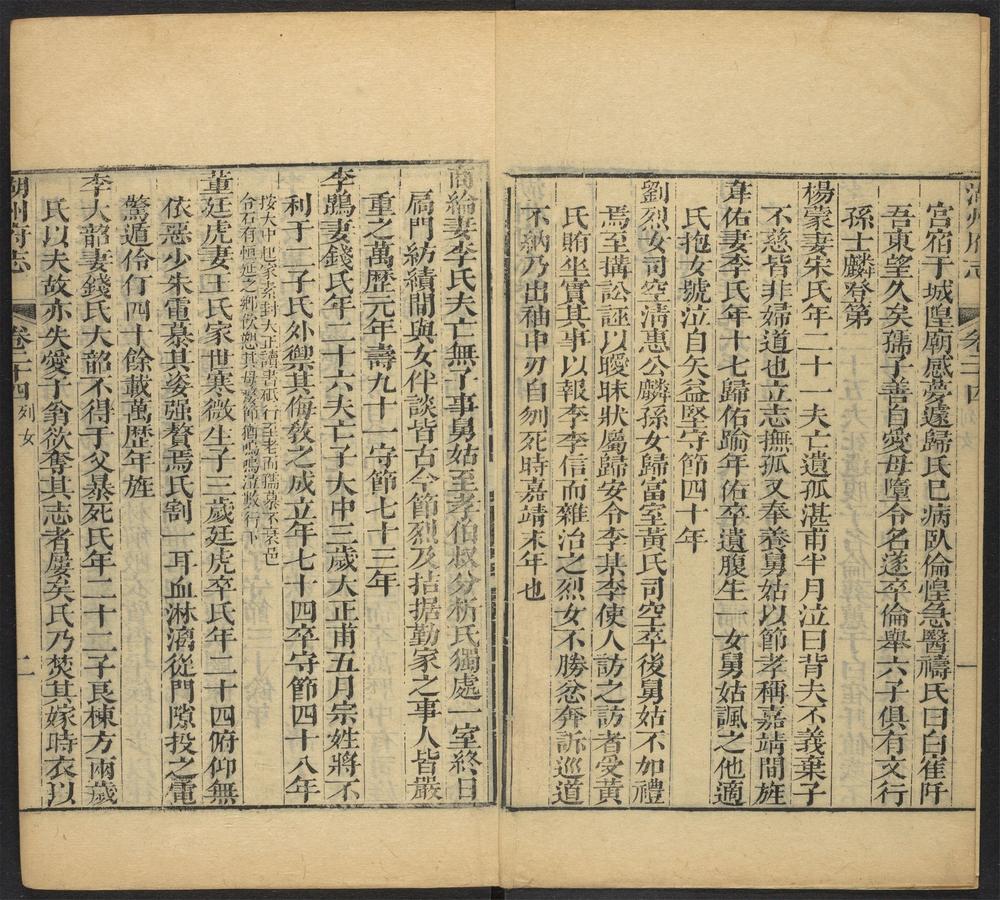 湖州府志 卷二十四 一
宮宿于城隍廟感夢遽歸氏巳病臥倫惶急醫禱氏曰白雀阡
吾東望久矣孺子善自愛母墮令名遂卒倫舉六子俱有文行
孫士麟登第
楊蒙妻宋氏年二十一夫亡遺孤湛甫半月泣曰背夫不義棄子
不慈皆非婦道也立志撫孤又奉養舅姑以節孝稱嘉靖間旌
韋佑妻李氏年十七歸佑踰年佑卒遺腹生一女舅姑諷之他適
氏抱女號泣自矢益堅守節四十年
劉烈女司空清惠公麟孫女歸富室黃氏司空卒後舅姑不如禮
焉至搆訟誣以曖昧狀屬歸安令李某李使人訪之訪者受黃
氏賄坐實其事以報李李信而雜治之烈女不勝忿奔訴巡道
不納乃出袖中刃自刎死時嘉靖末年也
商綸妻李氏夫亡無子事舅姑至孝伯叔分析氏獨處一室終日
扃門紡績間與女伴談皆古今節烈及拮据勤家之事人皆嚴
重之萬歷元年壽九十一守節七十三年
李鵾妻錢氏年二十六夫亡子大中三歲大正甫五月宗姓將不
利于二子氏外禦其侮教之成立年七十四卒守節四十八年
按大中起家素封大正讀書砥行至老而孺慕不衰邑
令石有恒延之鄉飲恕其母
董廷虎妻王氏家世寒微生子三歲廷虎卒氏年二十四俯仰無
依惡少朱電慕其姿强贅焉氏割一耳血淋漓從門隙投之電
驚遁伶仃四十餘載萬歷年旌
李大韶妻錢氏大韶不得于父暴死氏年二十二子長棟方兩歲
氏以夫故亦失愛于翁欲奪其志者屢矣氏乃焚其嫁時衣以
湖州府志 卷二十四 列女 二